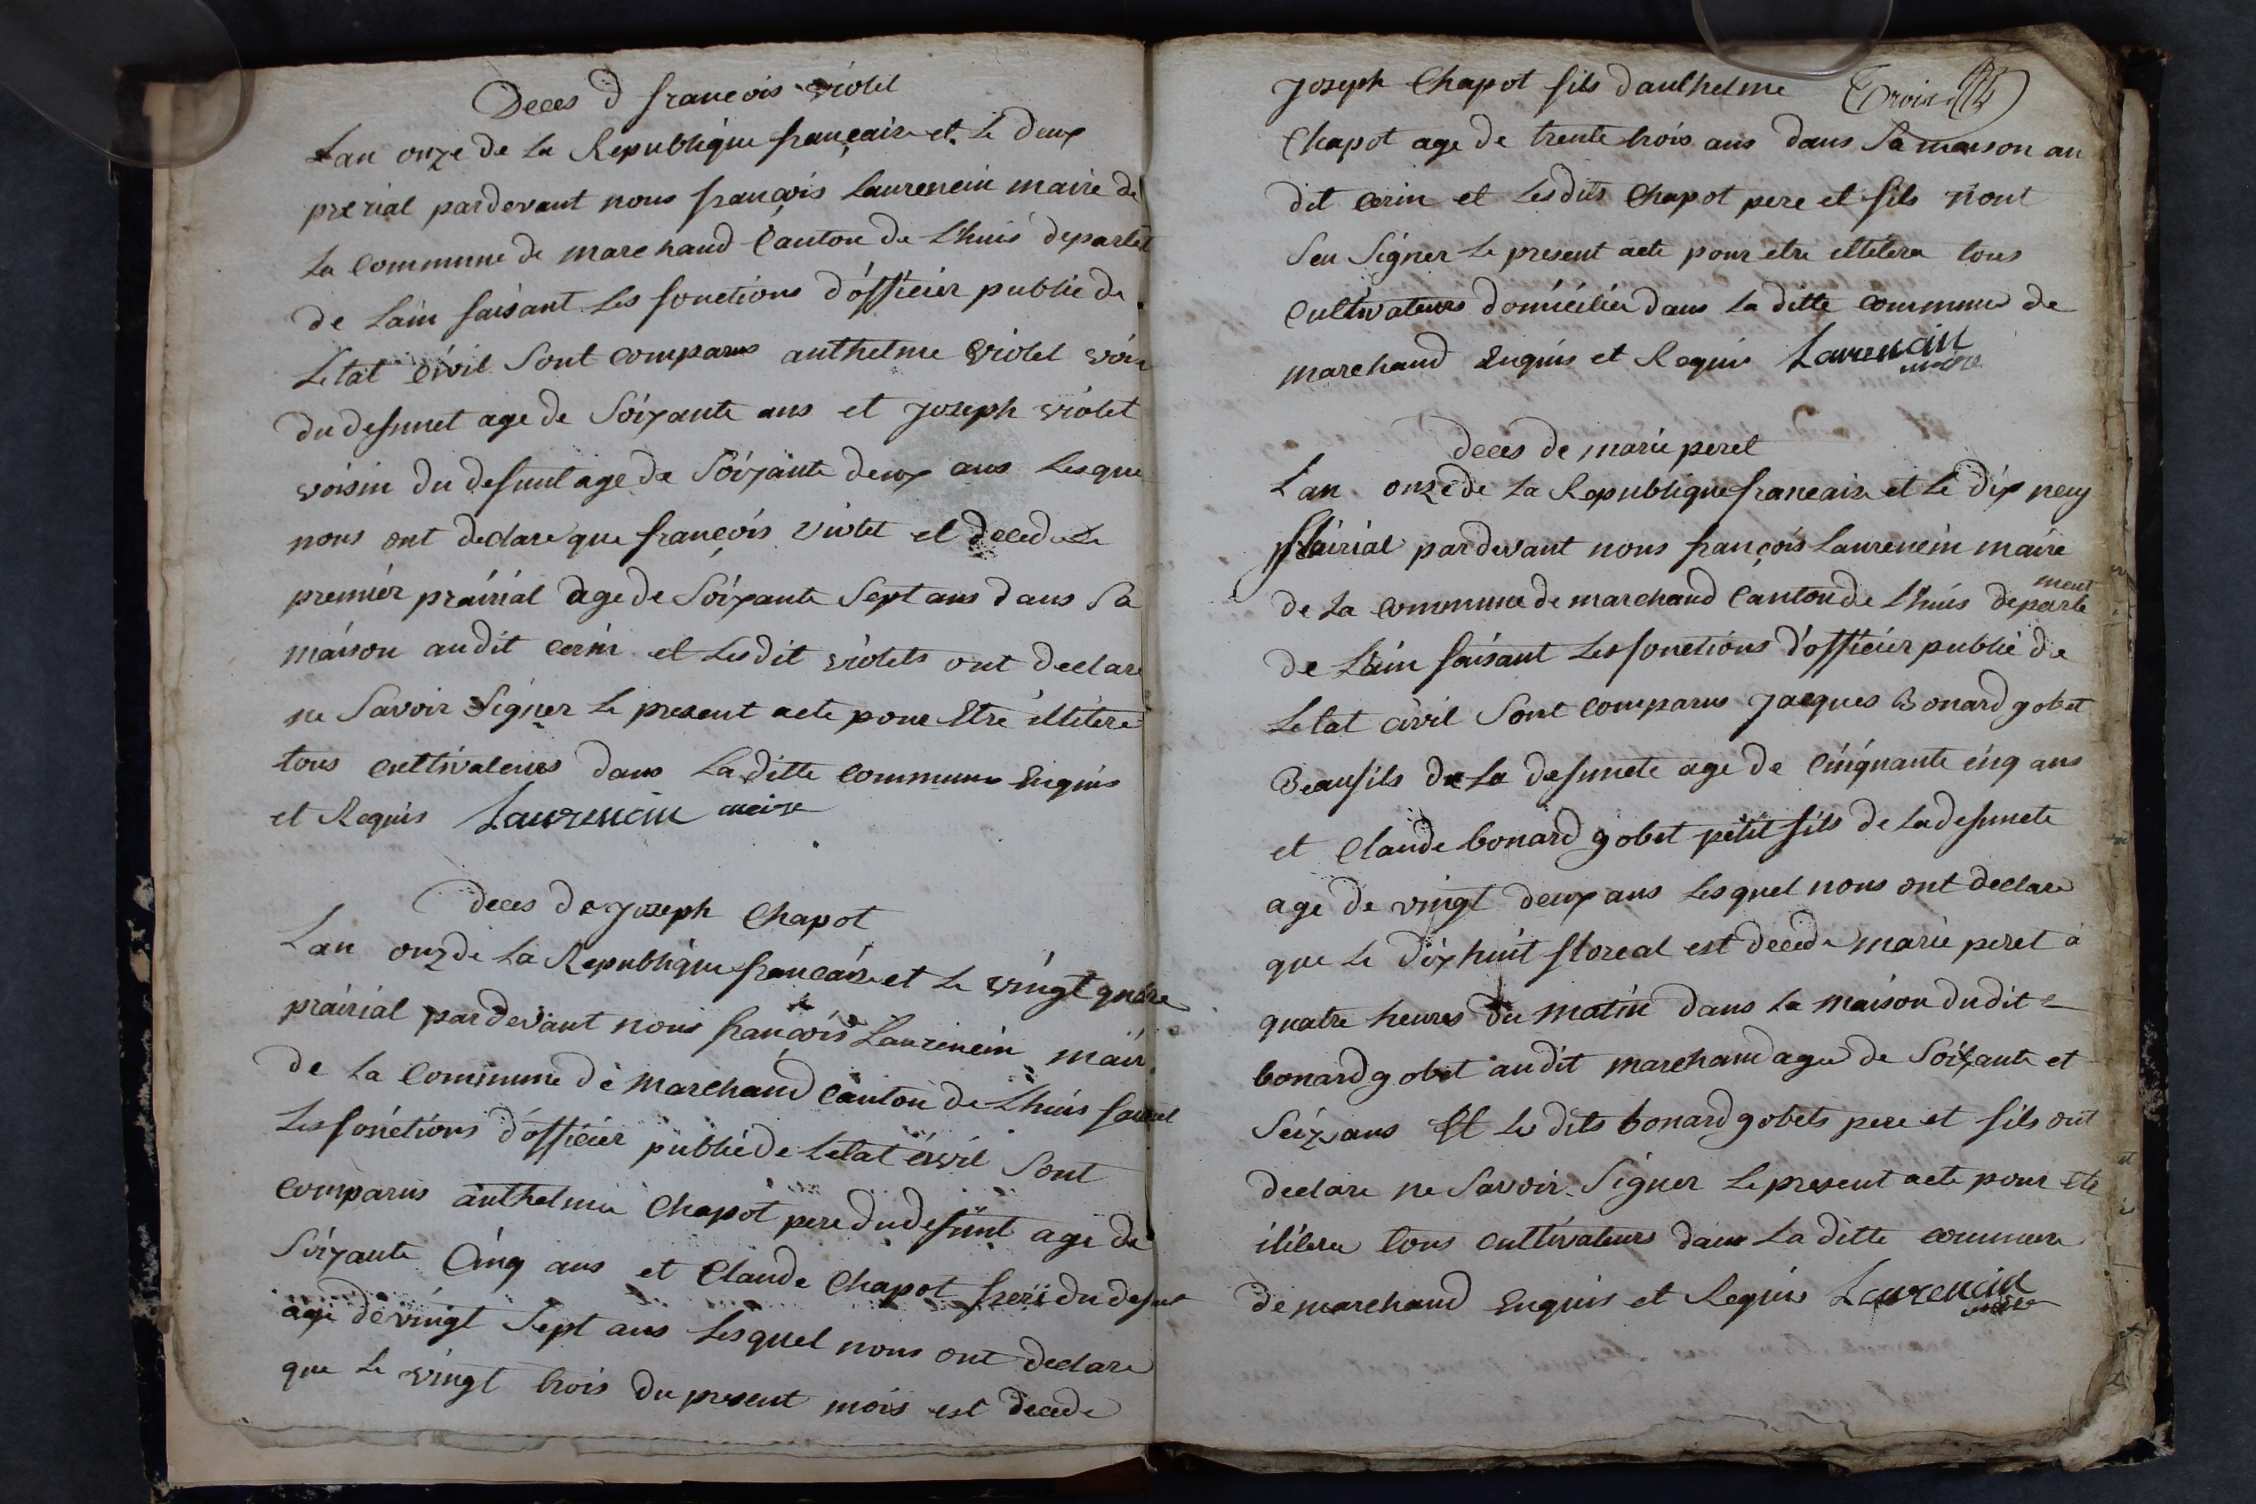 Deces d françois violet
Lan onze de la Republique françaire et le deux
prerial pardevant nous françois laurencin maire de
la commune de marchand Canton de Lhuis depart
de Lain faisant les fonctions d'officier public de
Letat Civil Sont comparus anthelme violet voi
du defunct age de Soixante ans et joseph violet
voisin du defunt age de Soixante deux ans Lesque
nous ont declare que françois violet et decede Le
premier prairial age de Soixante Sept ans dans Sa
maison audit cerin et Lesdit violets ont declare
ne Savoir Signer Le present acte pour Etre illitere
tous cultivateurs dans Laditte commune Enquis
et Requis Laurencin maire
deces de joseph Chapot
Lan onz de La Republique française et Le vingt quatre
prairial pardevant nous françois Laurencin mair
de La Commune de marchand Canton de Lhuis faisant
Les fonctions d'officier public de Letat civil Sont
comparus anthelme Chapot pere du defunt age de
Soixante Cinq ans et Claude Chapot frere du defunt
age de vingt Sept ans Lesquel nous ont declare
que Le vingt trois du present mois est decede
joseph Chapot fils danthelme Trois
Chapot age de trente trois ans dans Sa maison au
dit cerin et Lesdits Chapot pere et fils n'ont
Seu Signer Le present acte pour etre illitere tous
Cultivateurs domiciliés dans La ditte commune de
marchand Enquis et Requis Laurencin
maire
deces de marie peret
Lan onze de La Republique francaise et Le dix neuf
flairial pardevant nous françois Laurencin maire
de La commune de marchand Canton de Lhuis departe
ment
de Lain faisant Les fonctions d'officier public de
Letat civil Sont comparus jacques Bonard gobet
Beaufils de La defuncte age de Cinquante cinq ans
et Claude bonard gobet petit fils de La defuncte
age de vingt deux ans Lesquel nous ont declare
que Le dix huit floreal est decede marie peret a
quatre heures du matin dans La maison dudit
bonard gobet audit marchand agee de Soixante et
Seize ans Et Les dits bonard gobets pere et fils ont
declare ne Savoir Signer Le present acte pour Etr
ilitere tous cultivateurs dans La ditte commune
de marchand Enquis et Requis Laurencin
maire